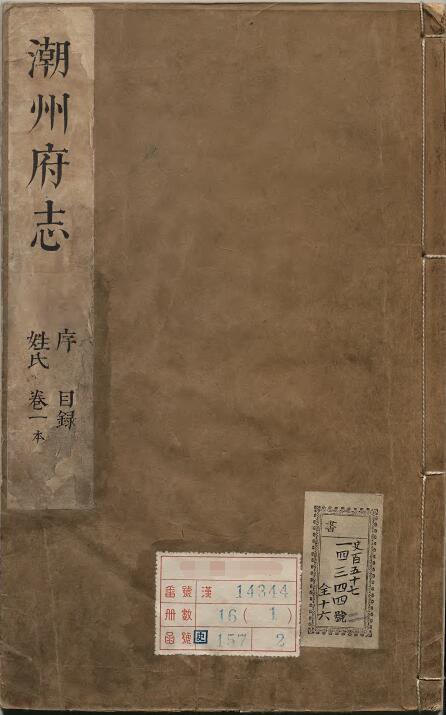 潮州府志
序 目録
姓氏 卷一本
書
史百五十七
一四三四四號
全十六
番號 漢 14344
册數 16(1)
函號 史 157 2